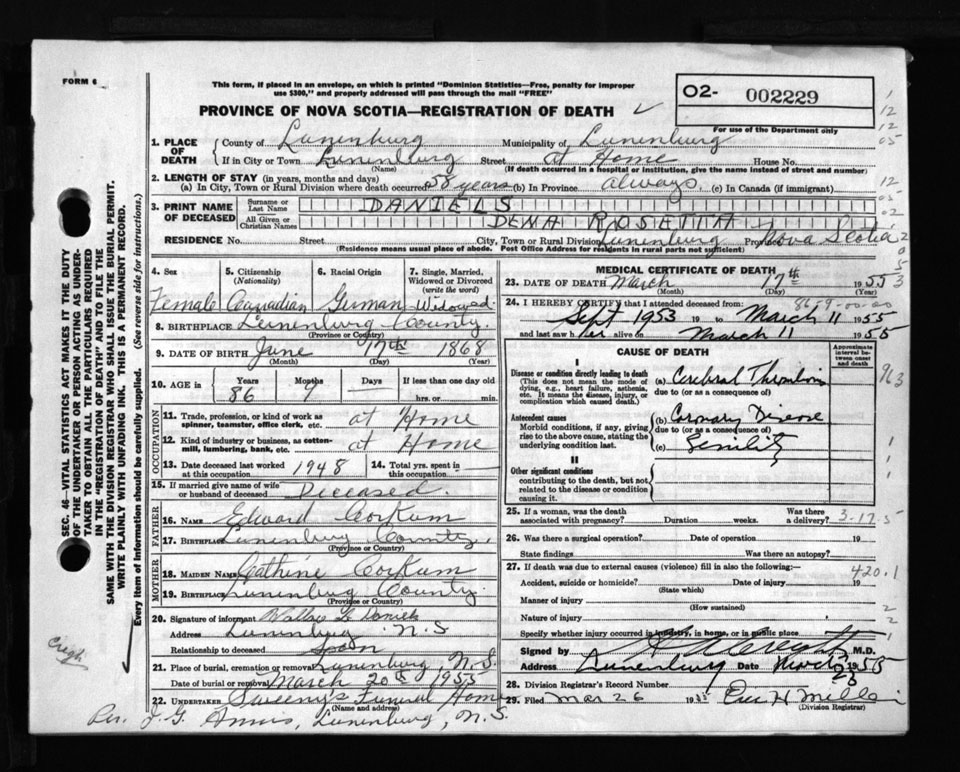 FORM 6
This form, if placed in an envelope, on which is printed "Dominion Statistics—Free, penalty for improper
use $300," and properly addressed will pass through the mail "FREE"
PROVINCE OF NOVA SCOTIA—REGISTRATION OF DEATH ✓
O2- 002229
For use of the Department only
1. PLACE OF DEATH
County of Lunenburg Municipality of Lunenburg
If in City or Town Lunenburg Street at Home House No.
(Name) (If death occurred in a hospital or institution, give its name instead of street and number)
2. LENGTH OF STAY (in years, months and days)
(a) In City, Town or Rural Division where death occurred 58 years (b) In Province always (c) In Canada (if immigrant)
3. PRINT NAME OF DECEASED
Surname or Last Name DANIELS
All Given or Christian Names DENA ROSETTA
RESIDENCE No. Street City, Town or Rural Division Lunenburg Province Nova Scotia
(Residence means usual place of abode. Post Office Address for rural parts not sufficient)
4. Sex Female
5. Citizenship (Nationality) Canadian
6. Racial Origin German
7. Single, Married, Widowed or Divorced (write the word) Widowed.
8. BIRTHPLACE Lunenburg County.
(Province or Country)
9. DATE OF BIRTH June 17th 1868
(Month) (Day) (Year)
10. AGE in Years 86 Months 9 Days If less than one day old
hrs. or min.
OCCUPATION
11. Trade, profession, or kind of work as spinner, teamster, office clerk, etc. at Home
12. Kind of industry or business, as cotton-mill, lumbering, bank, etc. at Home
13. Date deceased last worked at this occupation 1948 14. Total yrs. spent in this occupation
15. If married give name of wife or husband of deceased Deceased.
FATHER
16. NAME Edward Corkum
17. BIRTHPLACE Lunenburg County.
(Province or Country)
MOTHER
18. MAIDEN NAME Cathine Corkum
19. BIRTHPLACE Lunenburg County.
(Province or Country)
20. Signature of informant Wallace L Daniels
Address Lunenburg N.S
Relationship to deceased Son
21. Place of burial, cremation or removal Lunenburg, N.S.
Date of burial or removal March 20th 1955
22. UNDERTAKER Sweeny's Funeral Home
(Name and address)
Per. J. G. Annis, Lunenburg, N.S.
MEDICAL CERTIFICATE OF DEATH
23. DATE OF DEATH March 17th 1955
(Month) (Day)
24. I HEREBY CERTIFY that I attended deceased from:
86-9-00-00
Sept 1953 19 to March 11 1955
and last saw her alive on March 11 1955
CAUSE OF DEATH
Approximate interval between onset and death
I
Disease or condition directly leading to death
(This does not mean the mode of dying, e.g., heart failure, asthenia, etc. It means the disease, injury, or complication which caused death.)
(a) Cerebral Thrombosis
due to (or as a consequence of)
Antecedent causes
Morbid conditions, if any, giving rise to the above cause, stating the underlying condition last.
(b) Coronary Disease
due to (or as a consequence of)
(c) Senility
II
Other significant conditions
contributing to the death, but not related to the disease or condition causing it.
25. If a woman, was the death associated with pregnancy? Duration weeks. Was there a delivery? 3-17-5
26. Was there a surgical operation? Date of operation 19
State findings Was there an autopsy?
27. If death was due to external causes (violence) fill in also the following:—
Accident, suicide or homicide? Date of injury 19 420.1
(State which)
Manner of injury
(How sustained)
Nature of injury
Specify whether injury occurred in industry, in home, or in public place
Signed by M.D.
Address Lunenburg Date March 23 1955
28. Division Registrar's Record Number
29. Filed Mar 26 1955
(Division Registrar)
SEC. 46—VITAL STATISTICS ACT MAKES IT THE DUTY
OF THE UNDERTAKER OR PERSON ACTING AS UNDER-
TAKER TO OBTAIN ALL THE PARTICULARS REQUIRED
IN THE "REGISTRATION OF DEATH" AND TO FILE THE
SAME WITH THE DIVISION REGISTRAR WHO SHALL ISSUE THE BURIAL PERMIT.
WRITE PLAINLY WITH UNFADING INK. THIS IS A PERMANENT RECORD.
Every item of information should be carefully supplied. (See reverse side for instructions.)